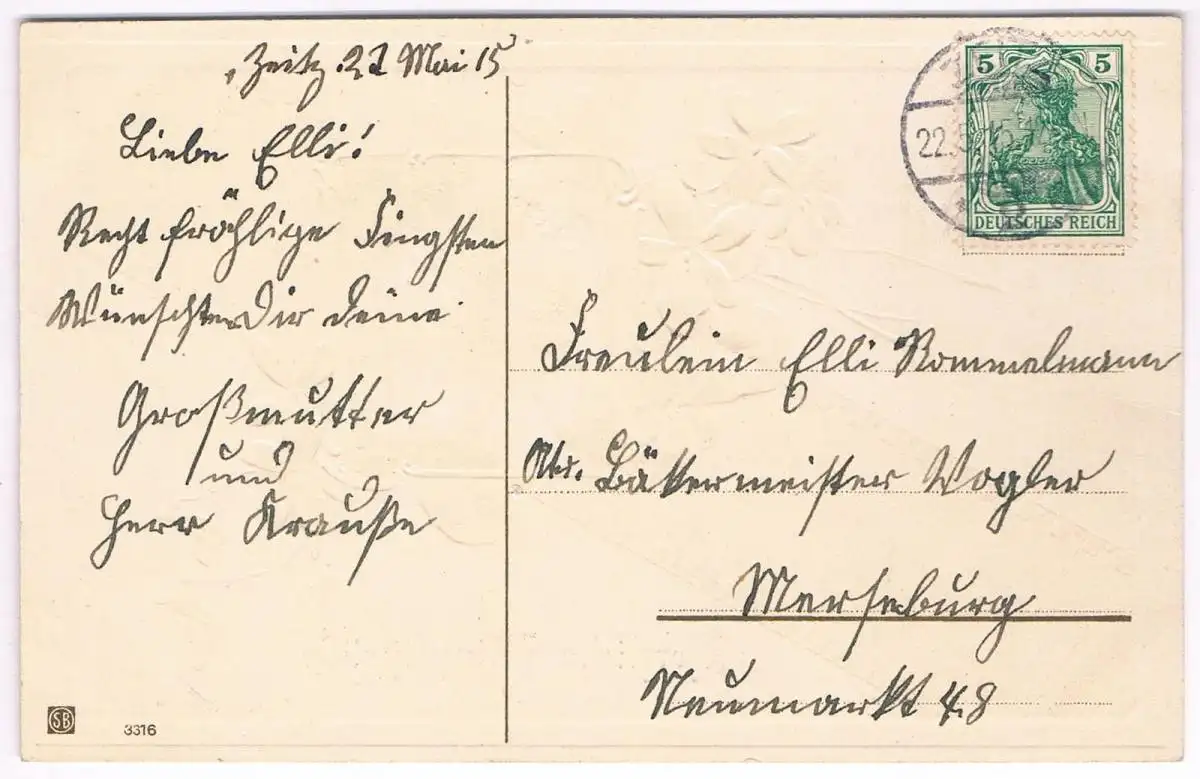 Zeitz. 22 Mai 15
Liebe Elli!
Recht fröhlige Fingsten
Wünscht Dir deine
Großmutter
und
Herr Krauße
5 5
DEUTSCHES REICH
22.5.15
Freulein Elli Rommelmann
Adr. Bäkermeister Vogler
Merseburg
Neumarkt 48
SB
3316